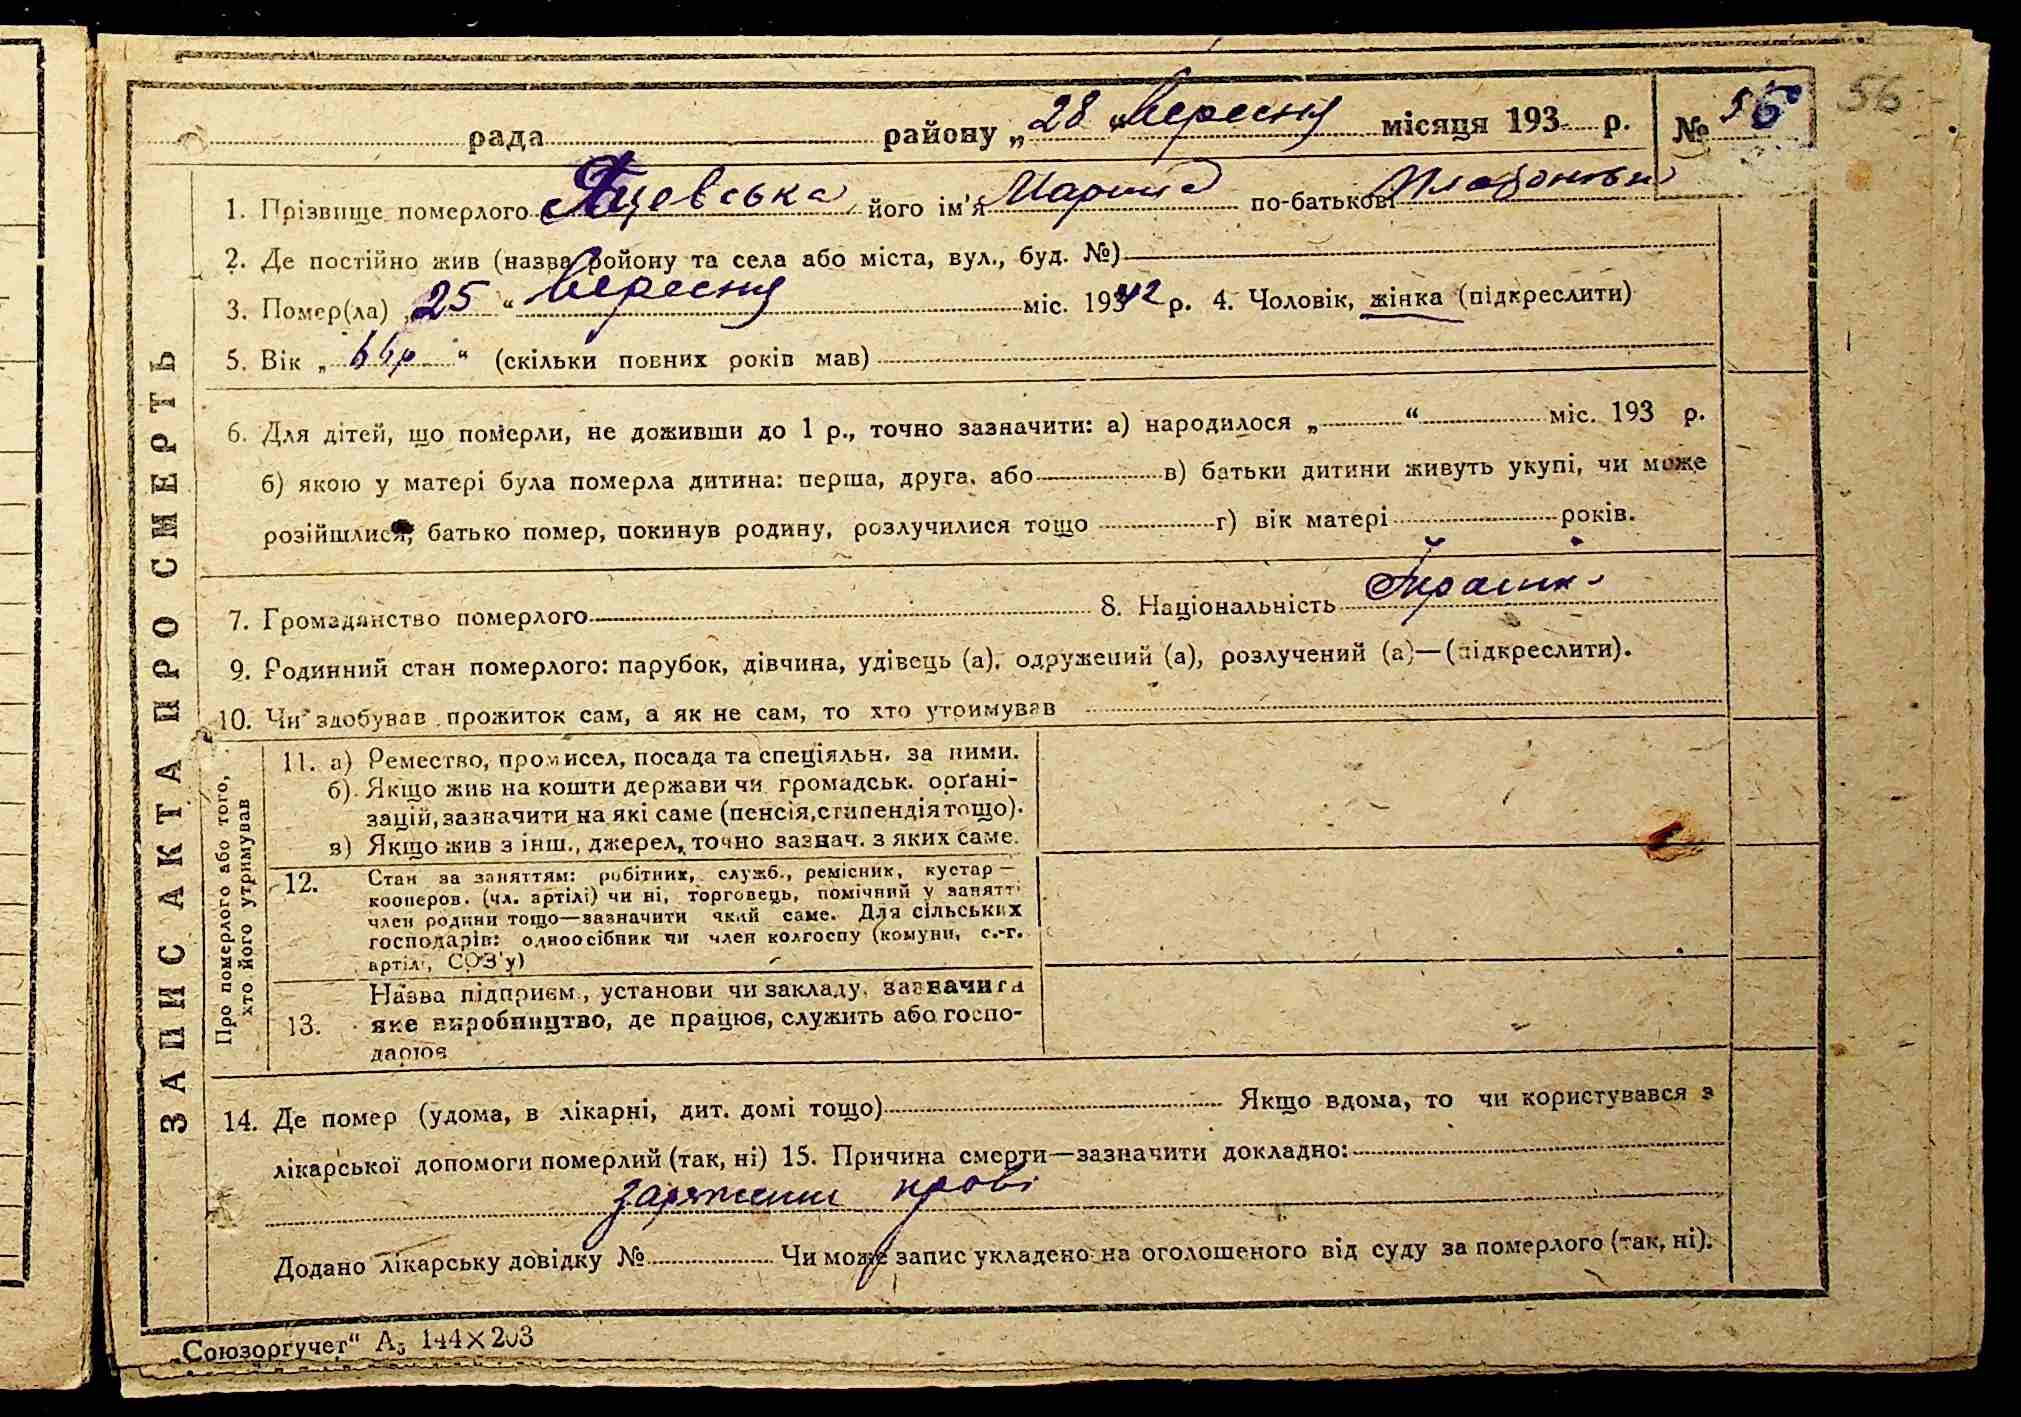 рада района „28“ вересня місяця 193 р. № 56 56
1. Прізвище померлого Яцевська його ім'я Марина по-батькові
2. Де постійно жив (назва ройону та села або міста, вул., буд. №)
3. Помер(ла) „25“ вересня міс. 1942 р. 4. Чоловік, жінка (підкреслити)
5. Вік „ “ (скільки повних років мав)
6. Для дітей, що померли, не доживши до 1 р., точно зазначити: а) народилося „ “ міс. 193 р.
б) якою у матері була померла дитина: перша, друга, або в) батьки дитини живуть укупі, чи може
розійшлися, батько помер, покинув родину, розлучилися тощо г) вік матері років.
7. Громадянство померлого 8. Національність
9. Родинний стан померлого: парубок, дівчина, удівець (а), одружений (а), розлучений (а)—(підкреслити).
10. Чи здобував прожиток сам, а як не сам, то хто утримував
ЗАПИС АКТА ПРО СМЕРТЬ
Про померлого або того,
хто його утримував
11. а) Ремество, промисел, посада та спеціяльн. за ними.
б) Якщо жив на кошти держави чи громадськ. орґані-
зацій, зазначити на які саме (пенсія, стипендія тощо).
в) Якщо жив з інш., джерел, точно зазнач. з яких саме.
12. Стан за заняттям: робітник, служб., ремісник, кустар —
кооперов. (чл. артілі) чи ні, торговець, помічний у занятті
член родини тощо—зазначити який саме. Для сільських
господарів: одноосібник чи член колгоспу (комуни, с.-г.
артілі, СОЗ'у)
Назва підприєм., установи чи закладу, зазначити
13. яке виробництво, де працює, служить або госпо-
дарює
14. Де помер (удома, в лікарні, дит. домі тощо) Якщо вдома, то чи користувався з
лікарської допомоги померлий (так, ні) 15. Причина смерти—зазначити докладно:
зараження крові
Додано лікарську довідку № Чи може запис укладено на оголошеного від суду за померлого (так, ні).
„Союзоргучет“ А₅ 144×203